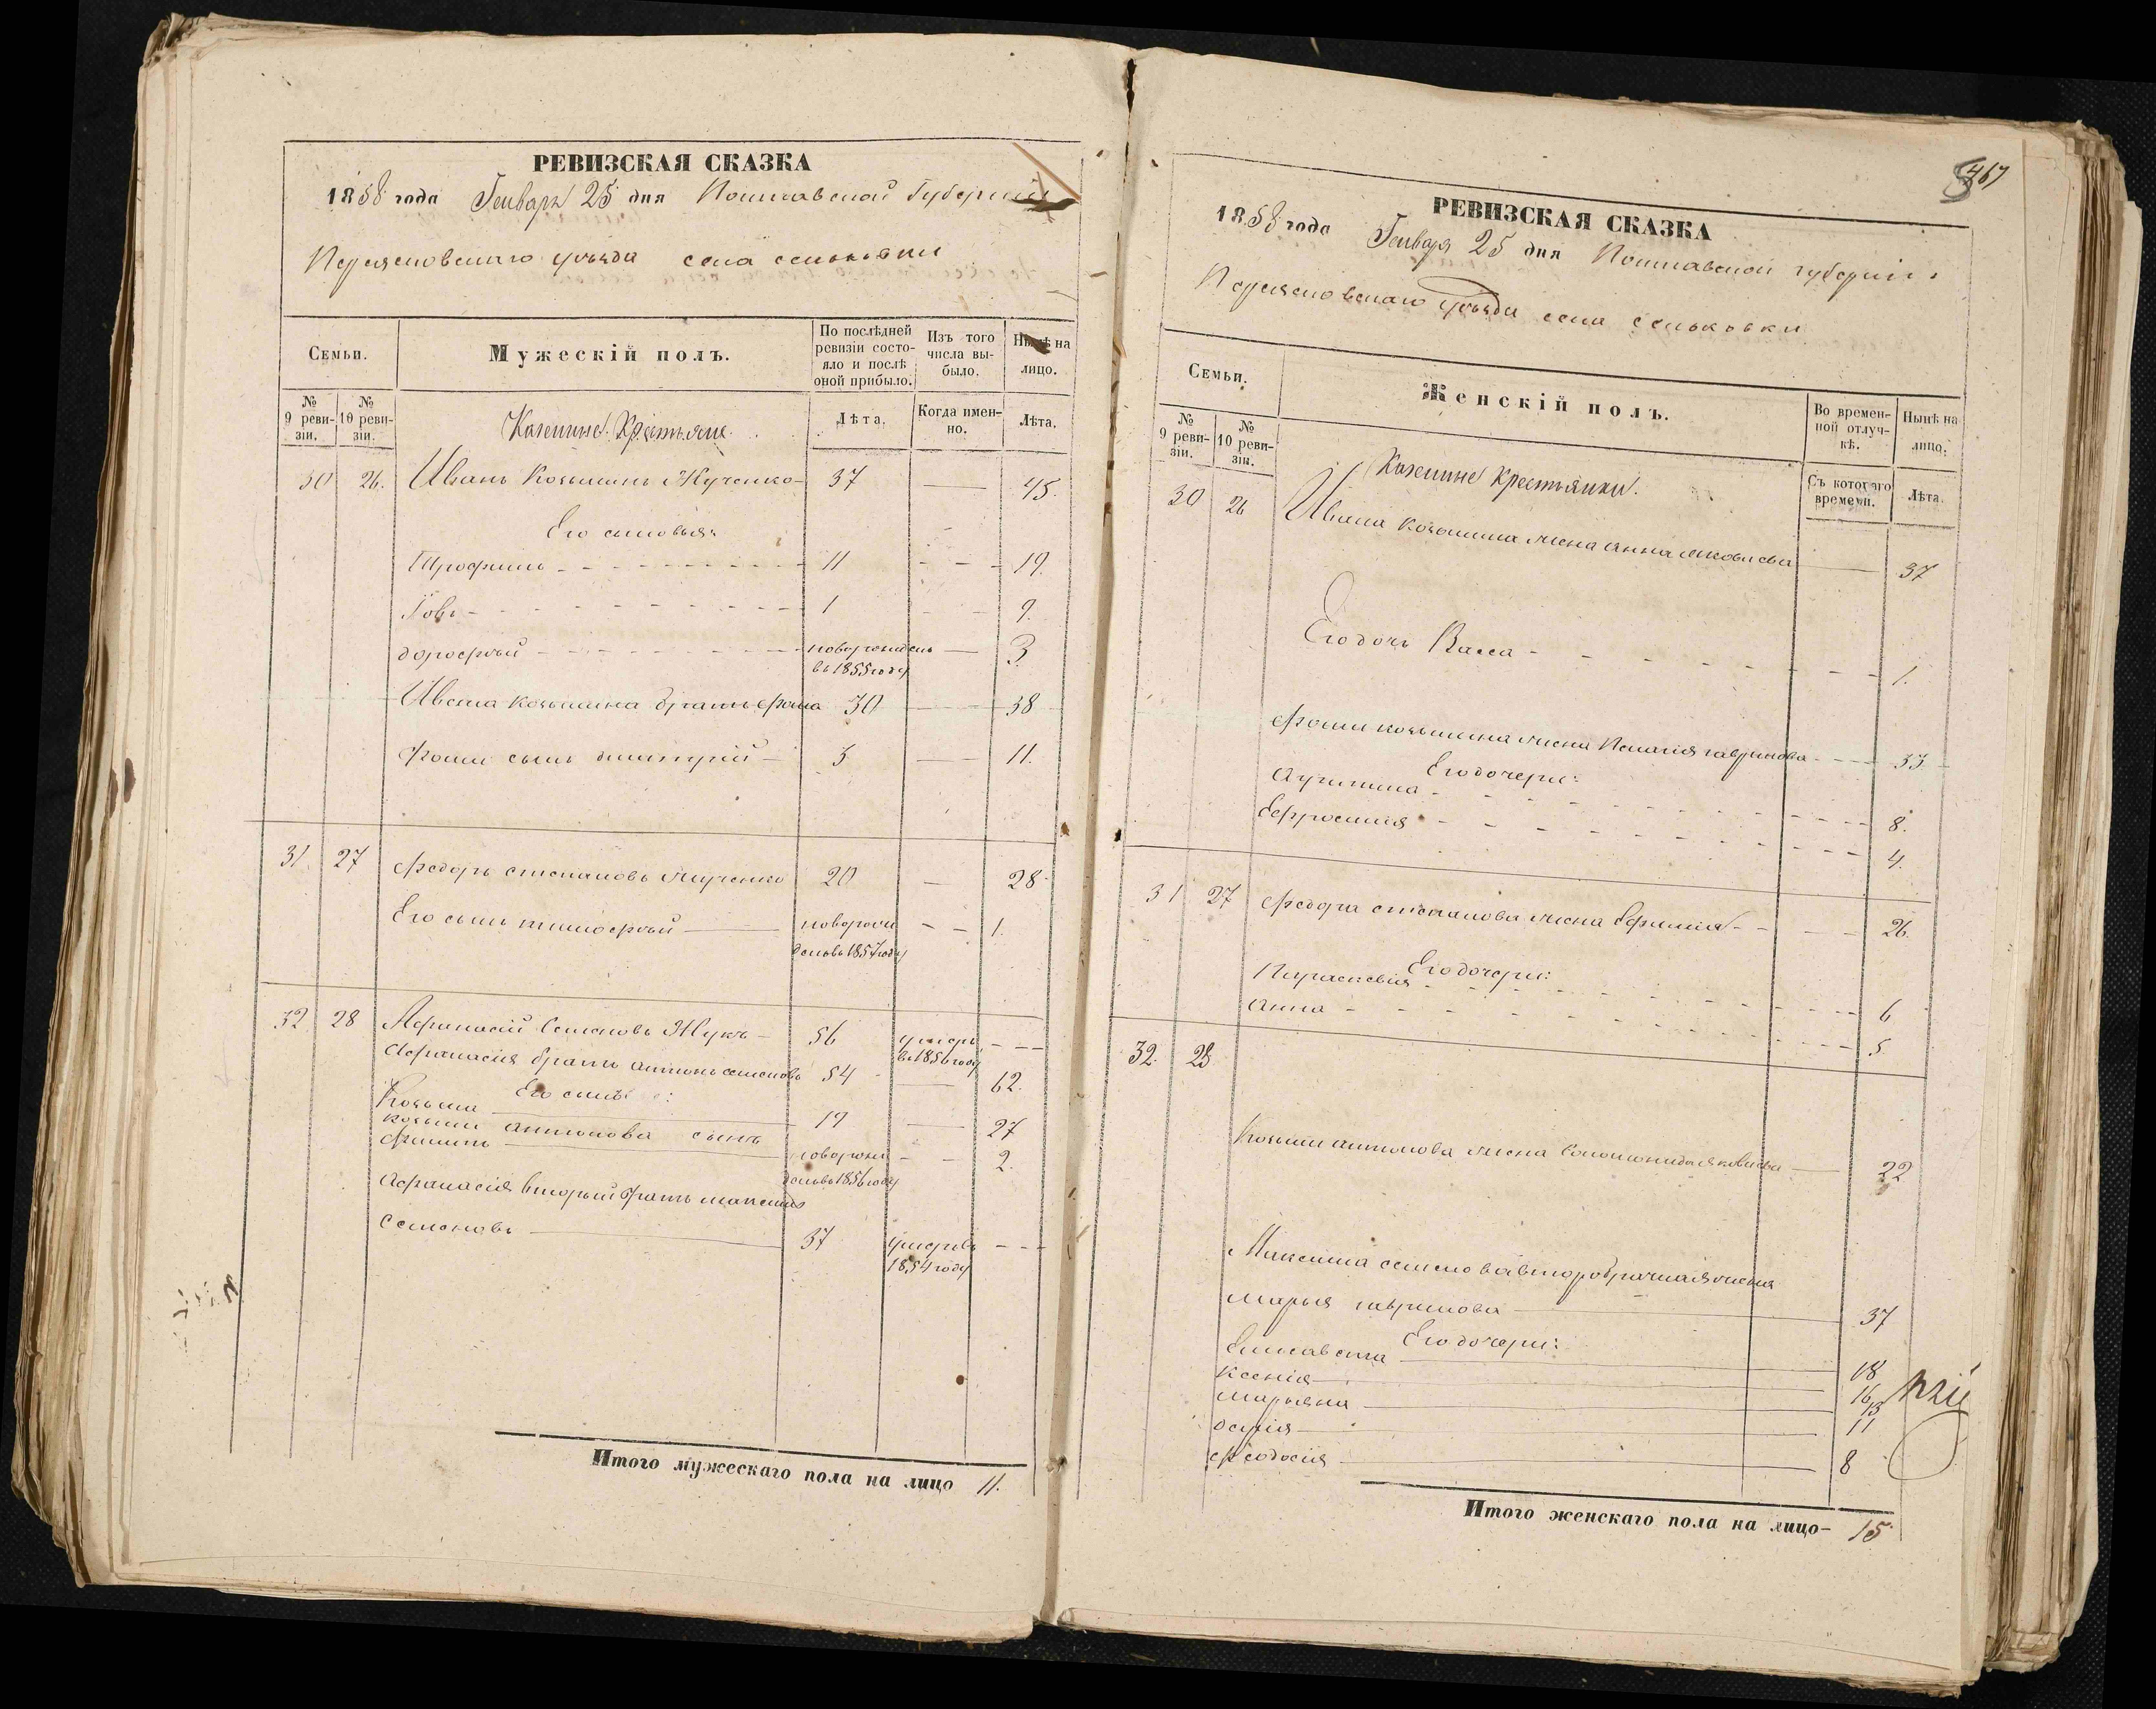 РЕВИЗСКАЯ СКАЗКА
1858 года Генваря 25 дня Полтавской Губерніи
Переясловского уѣзда села сеньковки
Семьи.
Мужескій полъ.
По послѣдней ревизіи состояло и послѣ оной прибыло.
Изъ того числа выбыло.
Нынѣ на лицо.
№ 9 ревизіи.
№ 10 ревизіи.
Казенные Крестьяне.
Лѣта.
Когда именно.
Лѣта.
30 26. Иванъ Козьминъ Жученко 37 — 45.
Его сыновья:
Трофимъ 11 - - - 19.
Іовъ 1 - - 9.
дорофѣй новорожденъ въ 1855 году — 3.
Ивана козьмина братъ фома 30 — 38
фомы сынъ дмитрій 3 — 11.
31 27 федоръ степановъ жученко 20 — 28
Его сынъ тимофѣй — новорожденъ въ 1857 году - - 1.
32 28 Афанасій Семеновъ Жукъ 56 умеръ въ 1856 году - - -
Афанасія братъ антонъ семеновъ 54 — 62.
Его сынъ:
Козьма 19 — 27
козьмы антонова сынъ
филипъ новорожденъ въ 1856 году - - 2.
Афанасія вторый братъ максимъ
Семеновъ 37 умеръ въ 1854 году - - -
Итого мужескаго пола на лицо 11.
467
РЕВИЗСКАЯ СКАЗКА
1858 года Генваря 25 дня Полтавской губерніи
Переясловского уѣзда села сеньковки
Семьи.
Женскій полъ.
Во временной отлучкѣ.
Нынѣ на лицо.
№ 9 ревизіи.
№ 10 ревизіи.
Казенные Крестьянки.
Съ котораго времени.
Лѣта.
30 26 Ивана козьмина жена анна яковлева — 37
Его дочь Васса 1.
фомы козьмина жена Пелагія гаврилова 33
Его дочери:
Акулина 8.
Ефросинія 4.
31 27 федора степанова жена Ефимія 26.
Его дочери:
Параскевія 6
анна 5
32. 28
Козьмы антонова жена Соломонида яковлева — 22
Максима семенова второбрачная жена
марья гаврилова — 37
Его дочери:
Елисавета 18
Ксенія 16
марьяна 13
дарія 11
феодосія 8
Итого женскаго пола на лицо- 15.